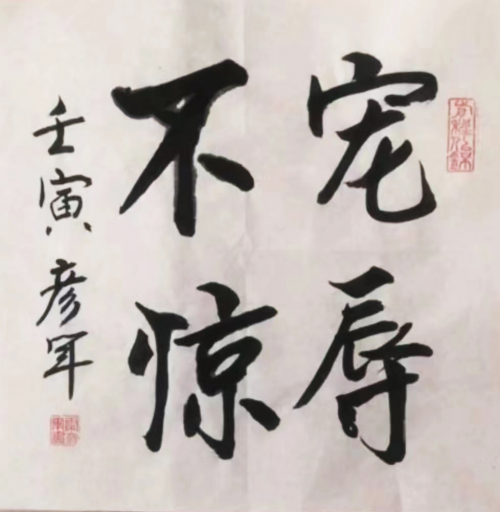 宠辱
不惊
壬寅彦军